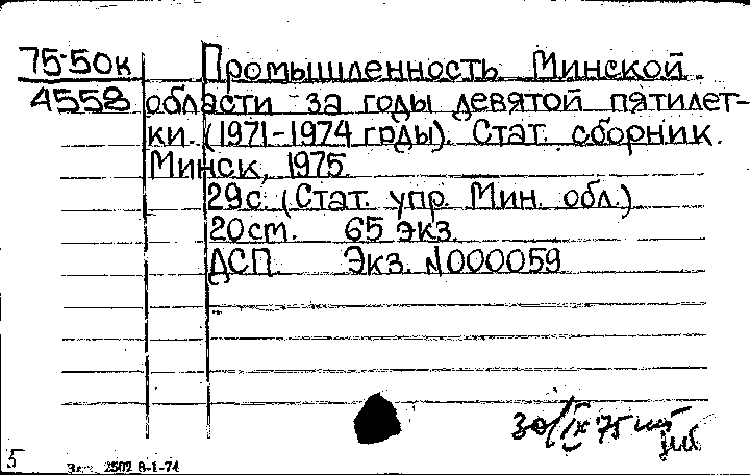 75-50к Промышленность Минской
4558 области за годы девятой пятилет-
ки. (1971-1974 годы). Стат. сборник.
Минск, 1975
29с. (Стат. упр. Мин. обл.)
20см. 65 экз.
ДСП. Экз. №000059
30/IX 75
5 Зак. 2502 8-1-74